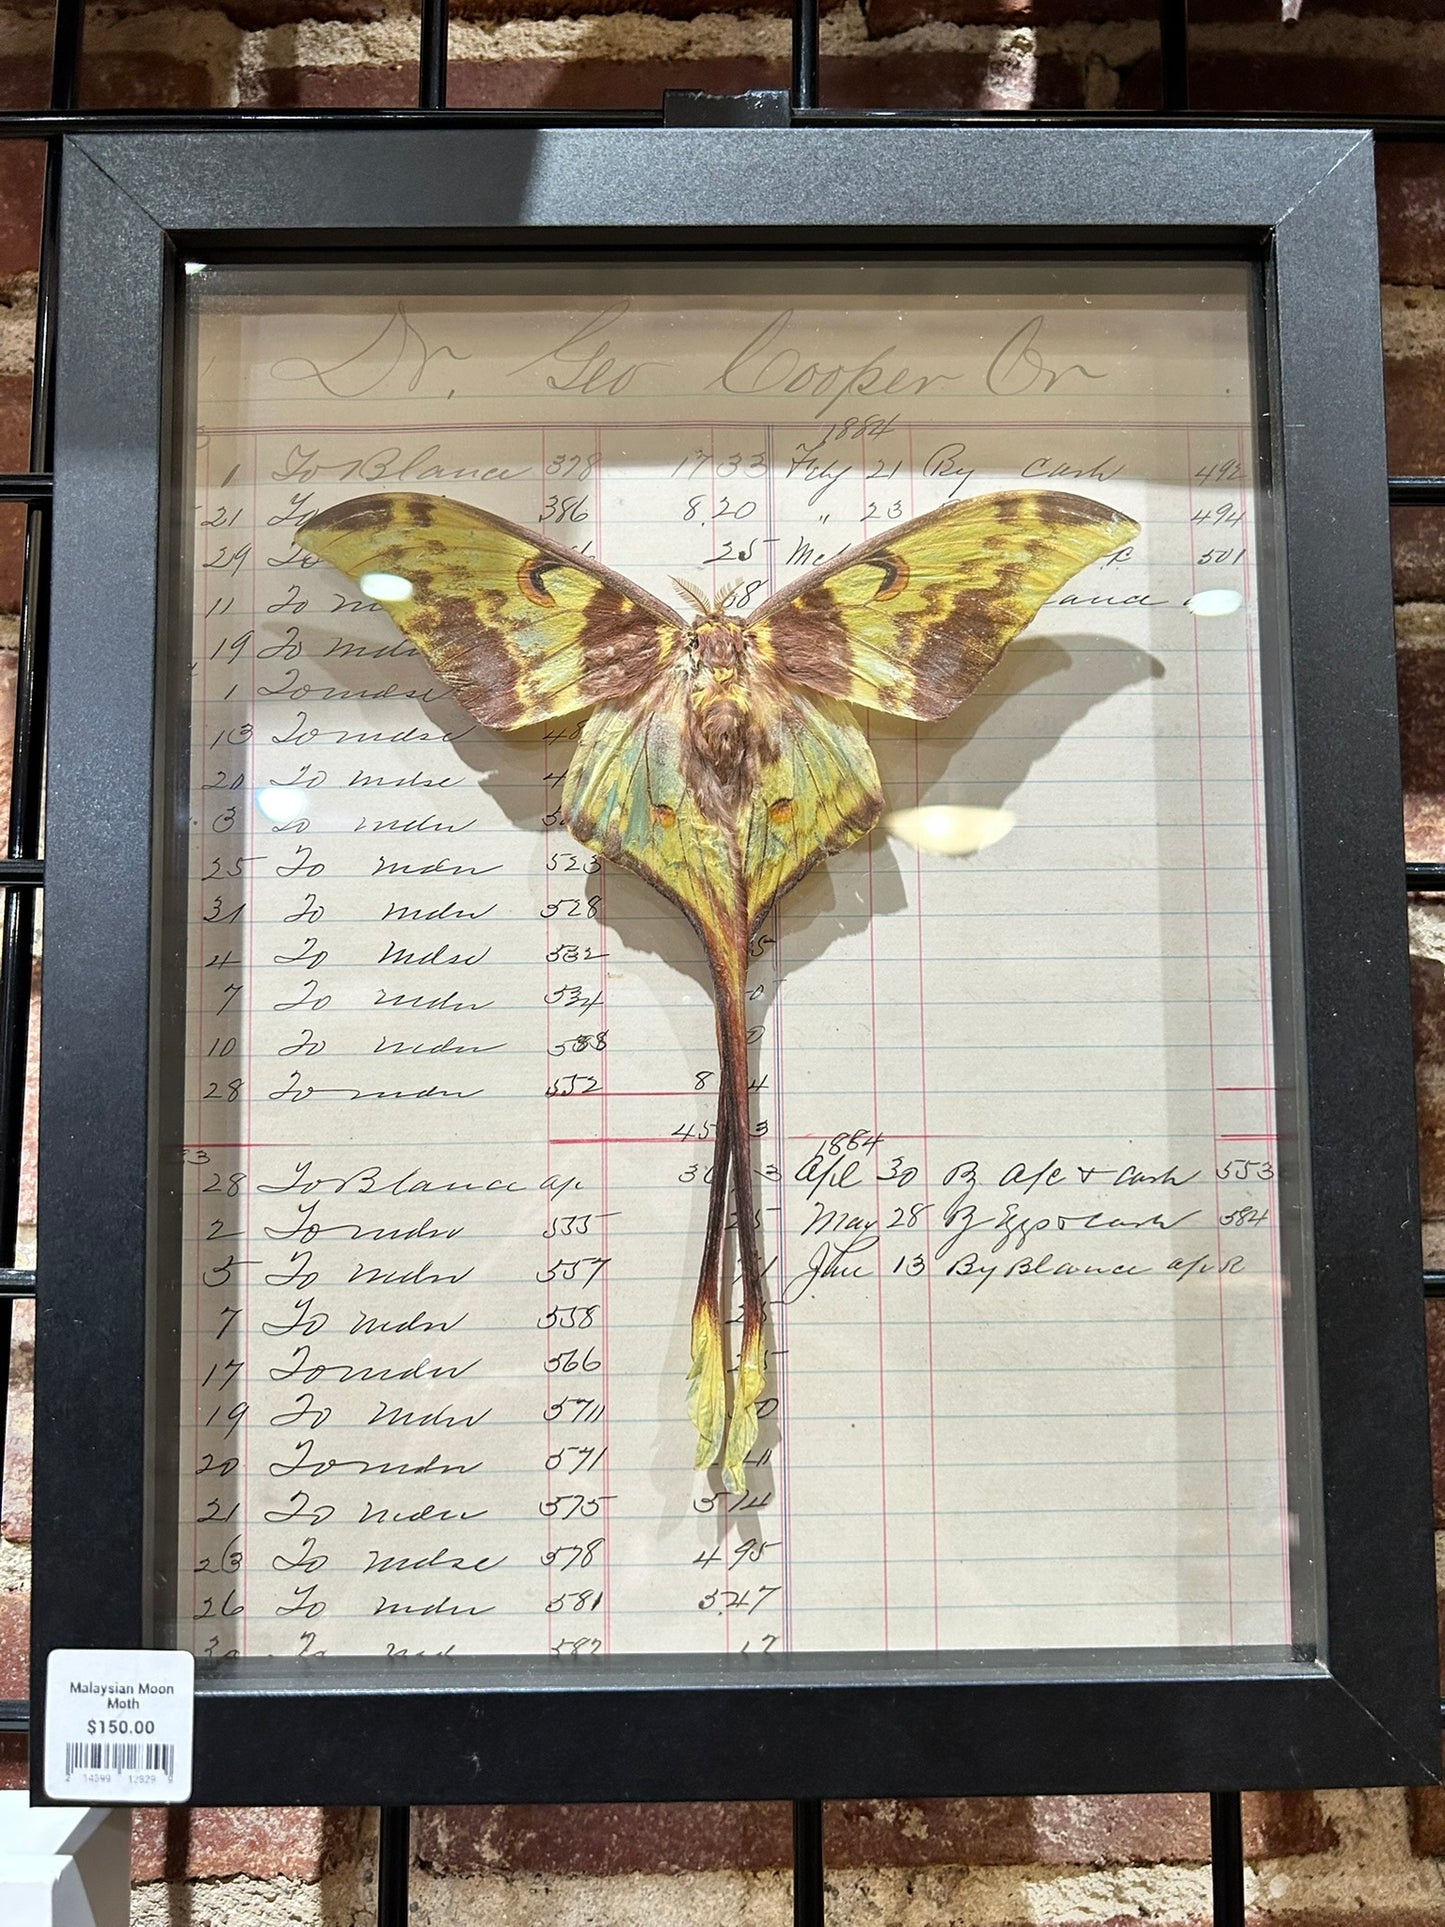 Dr. Geo Cooper Or
1884
1 To Blance 378 17 33 Feby 21 By Cash 492
21 To 386 8.20 " 23 494
29 To 25 501
11 To 68
19 To
1 To mdse
13 To mdse 48
20 To mdse 4
3 To mdse
25 To mdse 523
31 To mdse 528
4 To mdse 532
7 To mdse 534
10 To mdse 538
28 To mdse 552 8 4
45 3
1884
28 To Blance a/c 3 Apl 30 By a/c & Cash 553
2 To mdse 555 25 May 28 By Eggs & Cash 584
5 To mdse 557 71 June 13 By Blance
7 To mdse 558 25
17 To mdse 566 25
19 To mdse 570
20 To mdse 571
21 To mdse 575 514
23 To mdse 578 4 95
26 To mdse 581 347
582 17
Malaysian Moon
Moth
$150.00